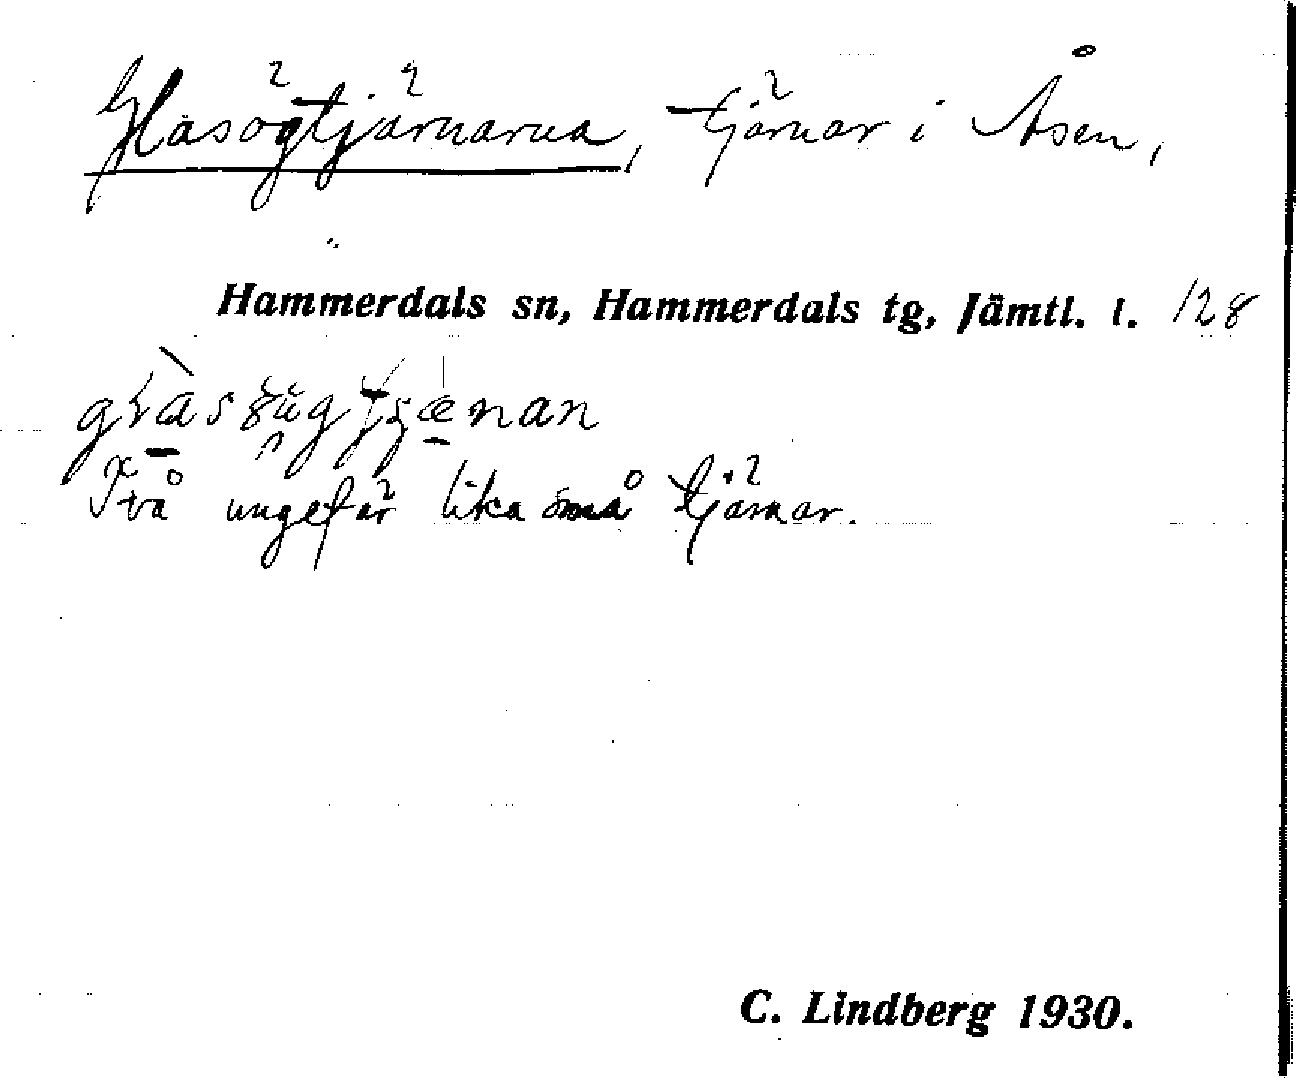 Glasögtjärnarna, tjärnar i Åsen,
Hammerdals sn, Hammerdals tg, Jämtl. l. 128
Två ungefär lika små tjärnar.
C. Lindberg 1930.